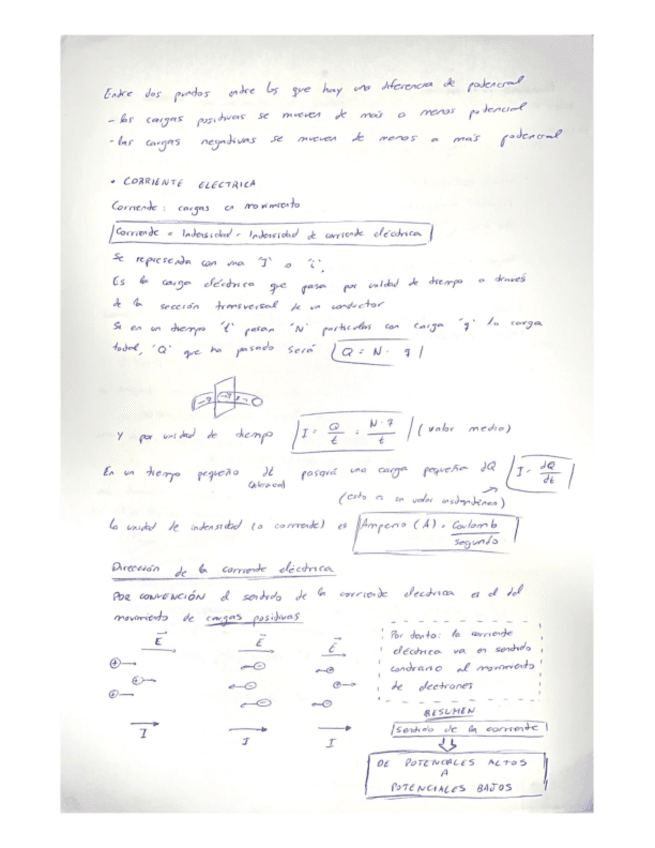 Entre dos puntos entre los que hay una diferencia de potencial
- las cargas positivas se mueven de más a menos potencial
- las cargas negativas se mueven de menos a más potencial
• CORRIENTE ELECTRICA
Corriente: cargas en movimiento
Corriente = Intensidad = Intensidad de corriente eléctrica
Se representa con una "I" o "i".
Es la carga eléctrica que pasa por unidad de tiempo a través
de la sección transversal de un conductor
Si en un tiempo "t" pasan "N" partículas con carga "q" la carga
total, "Q" que ha pasado será Q = N · q
Y por unidad de tiempo I = Q/t = N·q/t (valor medio)
En un tiempo pequeño dt pasará una carga pequeña dQ I = dQ/dt
(esto es un valor instantáneo)
La unidad de intensidad (o corriente) es Amperio (A) = Coulomb/segundo
Dirección de la corriente eléctrica
POR CONVENCIÓN el sentido de la corriente electrica es el del
movimiento de cargas positivas
E E E
I I I
Por tanto: la corriente
eléctrica va en sentido
contrario al movimiento
de electrones
RESUMEN
Sentido de la corriente
DE POTENCIALES ALTOS
A
POTENCIALES BAJOS